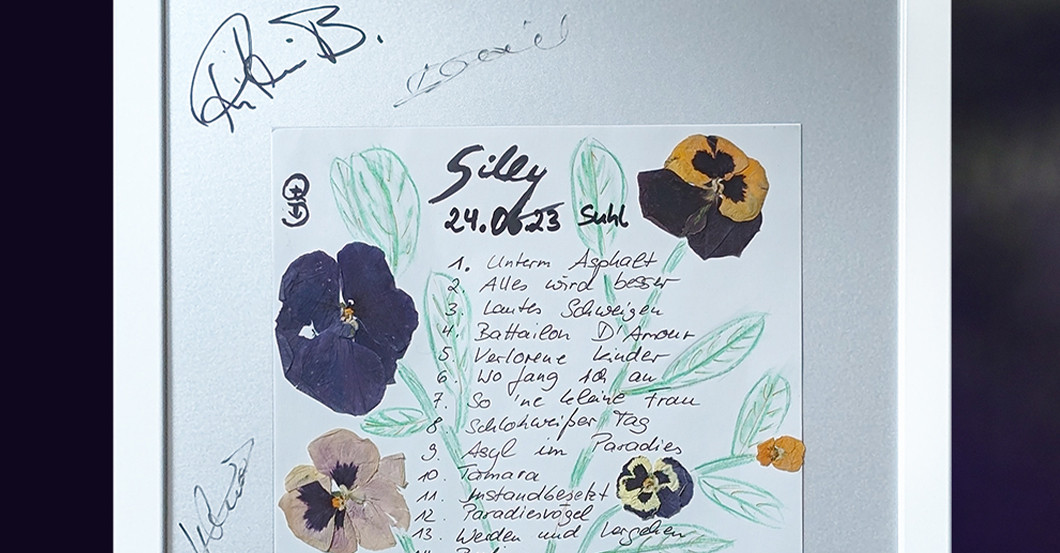 Silly
24.06.23 Suhl
1. Unterm Asphalt
2. Alles wird besser
3. Lautes Schweigen
4. Battailon D'Amour
5. Verlorene Kinder
6. Wo fang ich an
7. So 'ne kleine Frau
8. Schlohweißer Tag
9. Asyl im Paradies
10. Tamara
11. Instandbesetzt
12. Paradiesvögel
13. Werden und Vergehen